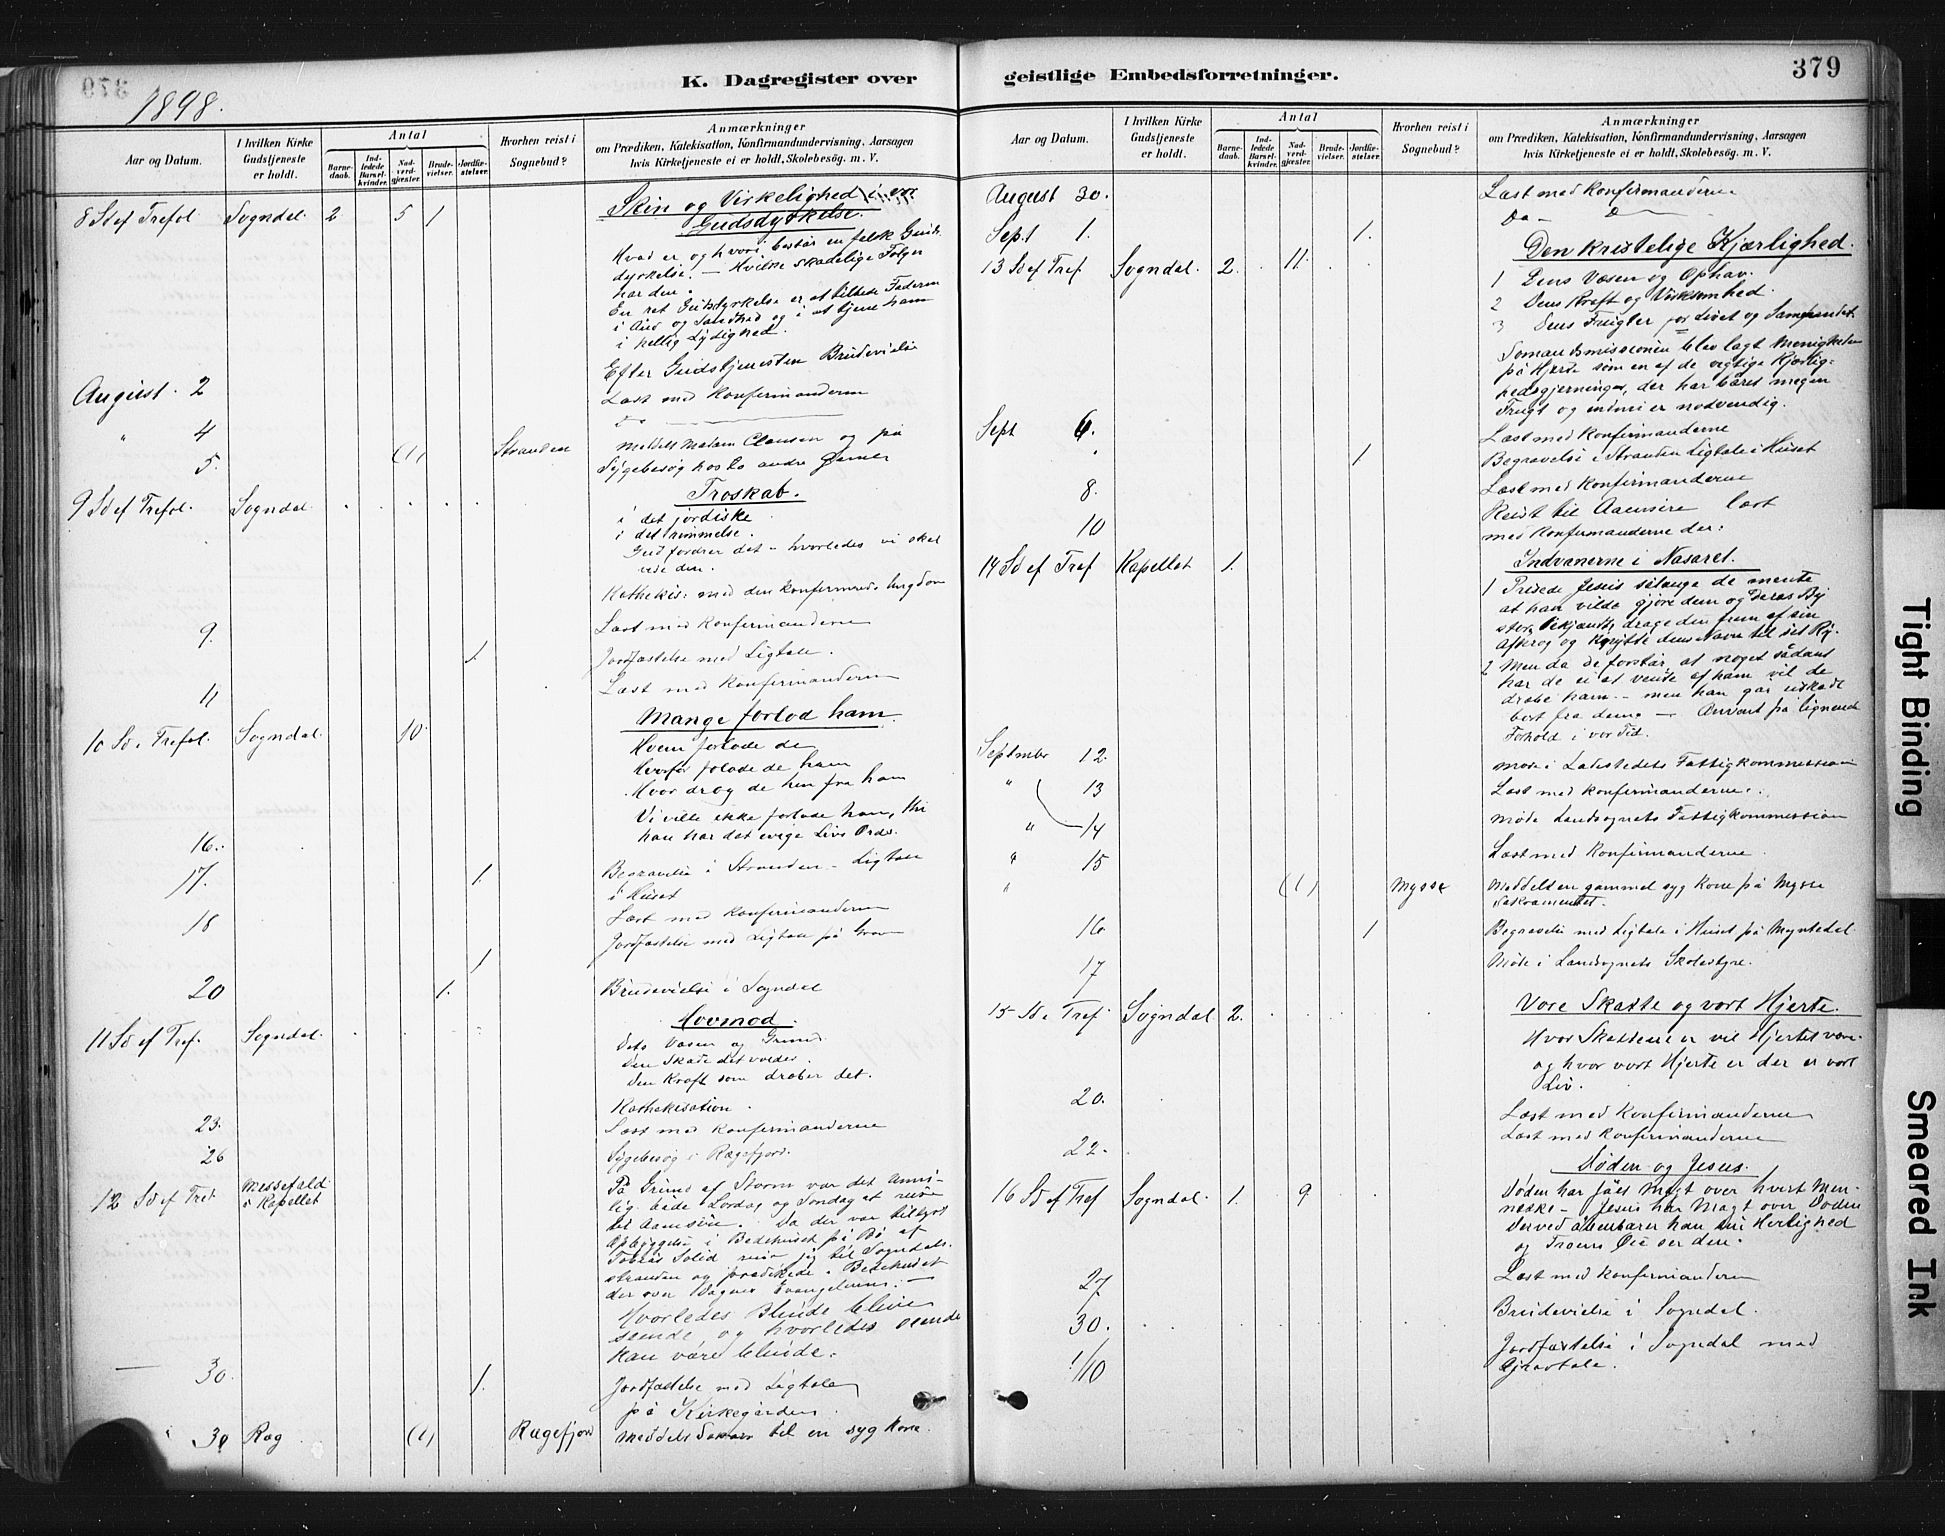 379
K. Dagregister over
geistlige Embedsforretninger.
379
1898.
Aar og Datum.
I hvilken Kirke Gudstjeneste er holdt.
Antal
Barne-daab.
Ind-ledede Barsel-kvinder.
Nad-verd-gjæster.
Brude-vielser.
Jordfæ-stelser.
Hvorhen reist i Sognebud?
Anmærkninger
om Prædiken, Katekisation, Konfirmandundervisning, Aarsagen
hvis Kirketjeneste ei er holdt, Skolebesøg. m. V.
8 S ef Trefol. Sogndal 2 5 1 Skin og Virkelighed i vor
Gudsdyrkelse.
Hvad er og hvori består en falsk Guds
dyrkelse. – Hvilke skadelige Følger
har den.
En ret Gudsdyrkelse er at tilbede Faderen
i Ånd og Sandhed og i at tjene ham
i hellig Lydighed.
Efter Gudstjenesten Brudevielse
August 2 Læst med Konfirmanderne
" 4 Do
5. (1) Stranden Meddelt Madam Clausen og på
Sygebesøg hos to andre
9 Sd ef Trefol. Sogndal Troskab.
i det jordiske
i det himmelske.
Gud fordrer det – hvorledes vi skal
vise den.
Kathekis: med den konfirmerede Ungdom
9. Læst med Konfirmanderne
1. Jordfæstelse med Ligtale.
11 Læst med Konfirmanderne
10 Sd e Trefol. Sogndal 10 Mange forlod ham.
Hvem forlode de
Hvorfor forlode de ham
Hvor drog de hen fra ham
Vi ville ikke forlade ham, thi
han har det evige Livs Ord.
16.
17. 1. Begravelse i Stranden – Ligtale
i Huset
18 Læst med Konfirmanderne
1 Jordfæstelse med Ligtale på Grav
20 1. Brudevielse i Sogndal
11 Sd ef Tref. Sogndal Hovmod.
Dets Væsen og Grund.
Den Skade det volder.
Den Kraft som dræber det.
Kathekisation.
23. Læst med Konfirmanderne
26 Sygebesøg i Rægefjord.
12 Sd ef Tref Messefald i Kapellet På Grund af Storm var det umu-
lig både Lørdag og Søndag at reise
til Aamsøie. Da der var tillyst
Opbyggelse i Bedehuset på Bø af
Tobias Solid reiste jeg til Sogndals-
stranden og prædikede i Bedehuset
der over Dagens Evangelium: –
Hvorledes Blinde blive
seende, og hvorledes seende
kan være blinde.
30. 1. Jordfæstelse med Ligtale
på Kirkegården.
30 Ræg (1) Rægefjord Meddelt Sakram til en syg Kone.
Aar og Datum.
I hvilken Kirke Gudstjeneste er holdt.
Antal
Barne-daab.
Ind-ledede Barsel-kvinder.
Nad-verd-gjæster.
Brude-vielser.
Jordfæ-stelser.
Hvorhen reist i Sognebud?
Anmærkninger
om Prædiken, Katekisation, Konfirmandundervisning, Aarsagen
hvis Kirketjeneste ei er holdt, Skolebesøg. m. V.
August 30. Læst med Konfirmanderne
Sept 1. 1. Do –
13 Sd ef Tref Sogndal. 2. 11. Den kristelige Kjærlighed.
1 Dens Væsen og Ophav.
2 Dens Kraft og Virksomhed.
3 Dens Frugter for Livet og Samfundet
Sømandsmissionen blev lagt Menigheden
på Hjerte som en af de vigtige Kjærlig-
hedsgjerninger, der har båret megen
Frugt og endnu er nødvendig.
Sept 6. Læst med Konfirmanderne
1 Begravelse i Stranden Ligtale i Huset
8. Læst med Konfirmanderne
10 Reist til Aamsøie læst
med Konfirmanderne der.
14 Sd ef Tref Kapellet 1. Indvånerne i Nasaret.
1 Prisede Jesus sålænge de mente
at han vilde gjøre dem og deres By
store Bekjendt, drage den frem af sin
Afkrog og knytte dens Navn til sit Ry.
2 Men da de forstår at noget sådant
har de ei at vente af ham vil de
dræbe ham – men han går uskadt
bort fra dem – Anvent på lignende
Forhold i vor Tid.
September 12. Møde i Ladestedets Fattigkommission
" 13 Læst med Konfirmanderne.
" 14 Møde Landsognets Fattigkommission
" 15 Læst med Konfirmanderne
" (1) Mysse Meddelt en gammel syg Kone på Mysse
Sakramentet.
16 1 Begravelse med Ligtale i Huset på Myntedal
17 Møde i Landsognets Skolestyre.
15 Sd e Tref. Sogndal 2. Vore Skatte og vort Hjerte.
Hvor Skattene er vil Hjertet være
og hvor vort Hjerte er der er vort
Liv.
20. Læst med Konfirmanderne
22. Læst med Konfirmanderne
16 Sd ef Tref Sogndal. 1. 9. Døden og Jesus.
Døden har fået Magt over hvert Men-
neske – Jesus har Magt over Døden
Derved åbenbarer han sin Herlighed
og Troens Øie ser den.
27 Læst med Konfirmanderne
30. Brudevielse i Sogndal.
1/10 Jordfæstelse i Sogndal med
Gravtale.
Tight Binding
Smeared Ink